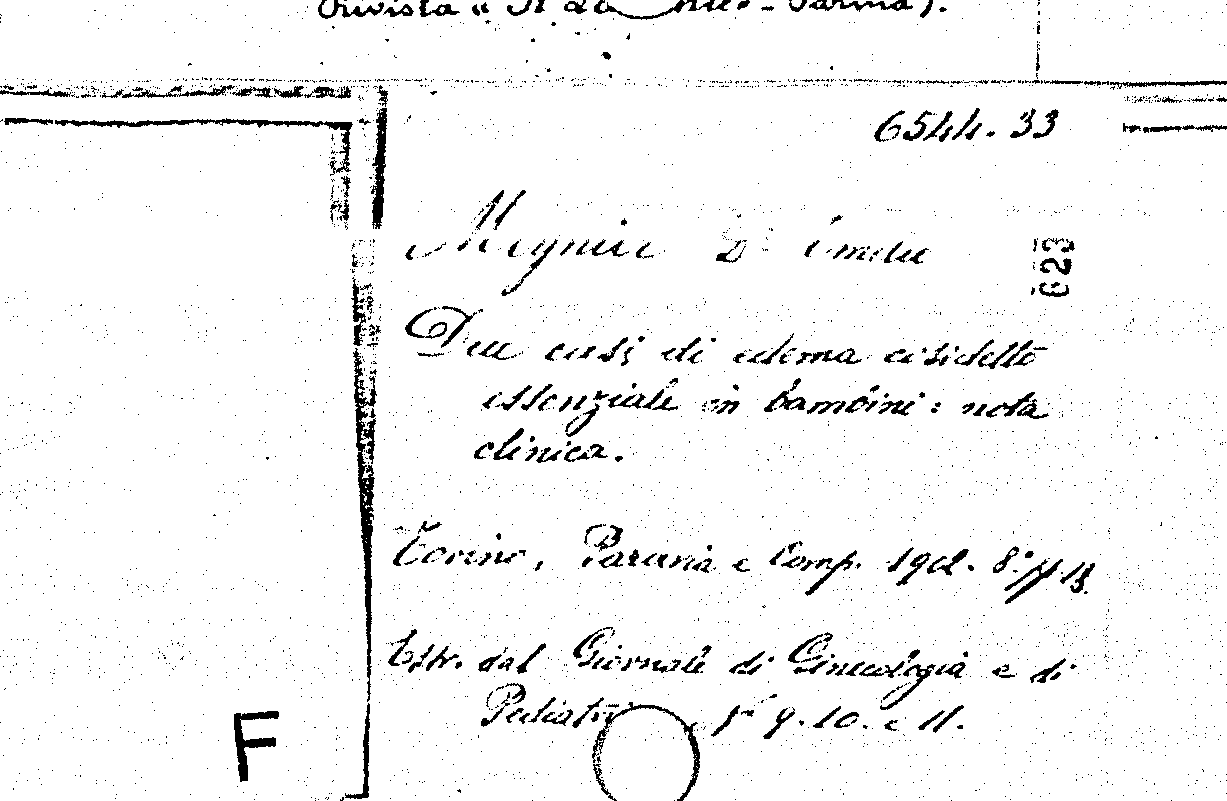 Rivista «
6544. 33
Meynier Dr Emilio
623
Due casi di edema cosidetto
essenziale in bambini: nota
clinica.
Torino, Paravia e Comp. 190 8º pp. 13.
Estr. dal Giornale di Ginecologia e di
Pediatri 9. 10. e 11.
F